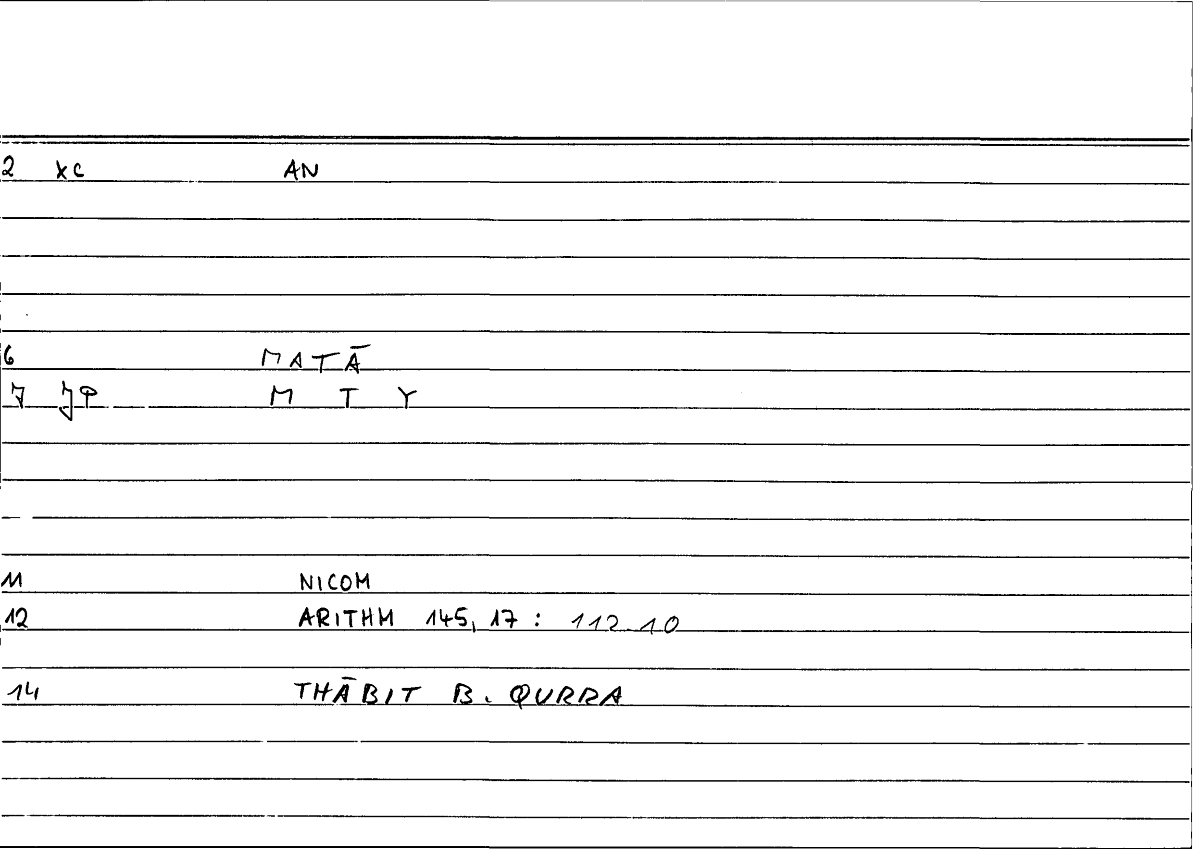 2 KC AN
6 MATĀ
7 JP M T Y
11 NICOM
12 ARITHM 145, 17 : 112.10
14 THĀBIT B. QURRA